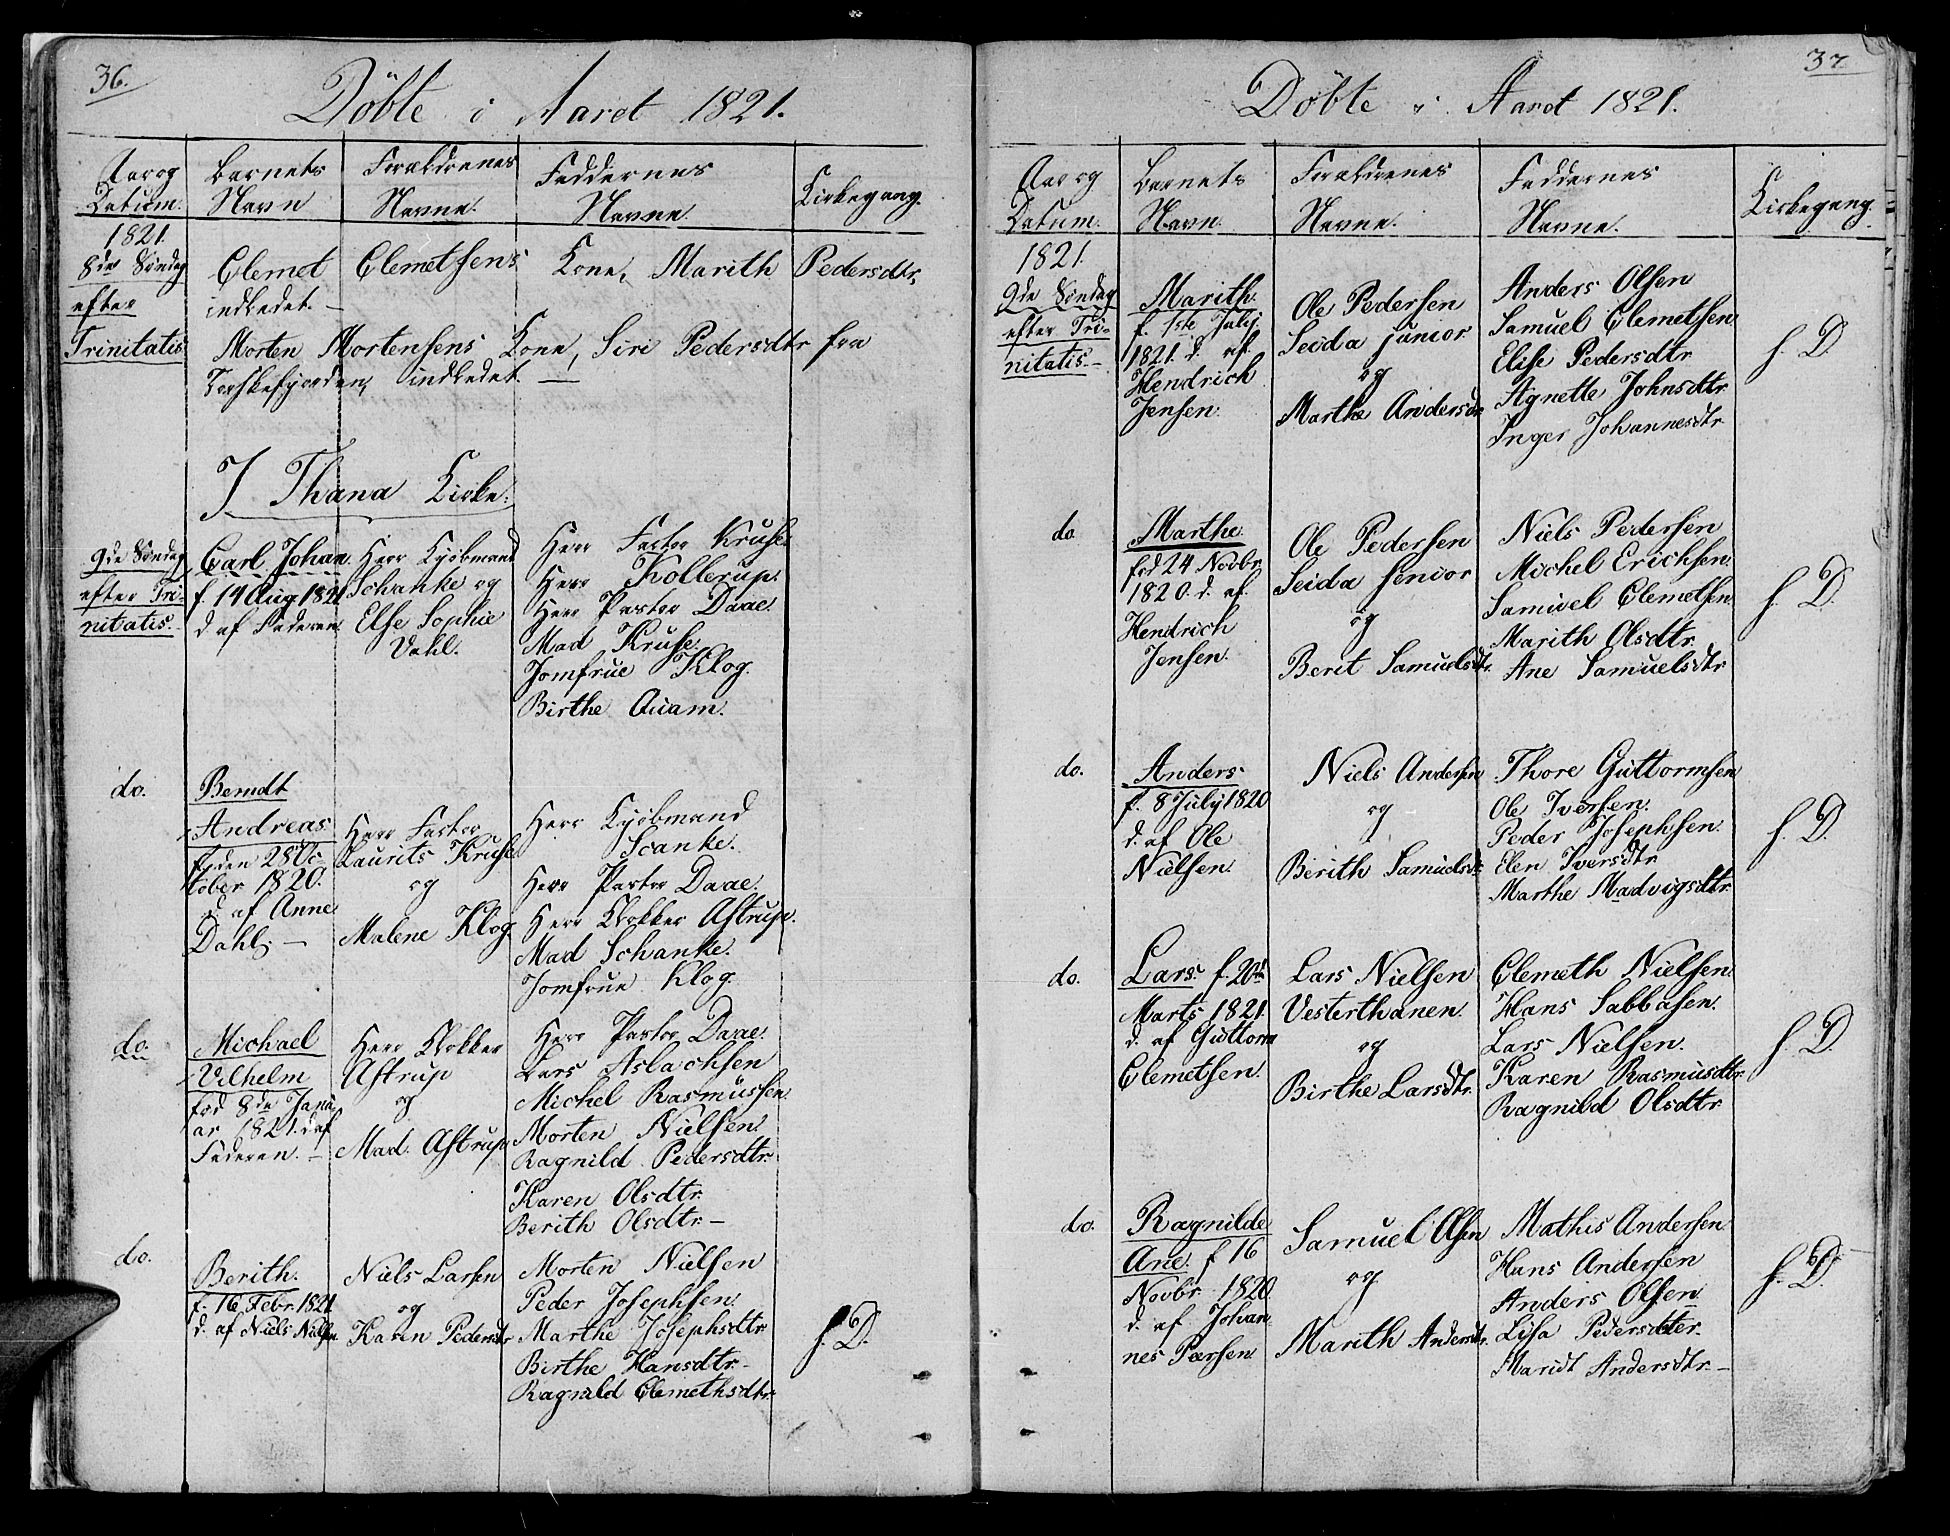 36.
Döbte i Aaret 1821.
Aar og Datum.
Barnets Navn
Forældrenes Navne.
Faddernes Navne.
Kirkegang.
1821.
8de Søndag
efter
Trinitatis
Clemet Clemetsens Kone, Marith Pedersdtr,
indledet. —
Morten Mortensens Kone, Siri Pedersdtr fra
Torskefjorden, indledet. —
I Thana Kirke.
9de Søndag
efter Tri-
nitatis.
Carl Johan.
f. 14 Aug 1821
d af Faderen
Herr Kjöbmand
Schanke og
Else Sophie
Dahl.
Herr Factor Kruse.
Herr Kollerup.
Herr Pastor Daae.
Mad Kruse.
Jomfrue Klog.
Birthe Quam.
do.
Berndt
Andreas.
f. den 28 Oc-
tober 1820.
d. af Anne
Dahl. —
Herr Factor
Laurits Kruse
og
Malene Klog.
Herr Kjöbmand
Scanke.
Herr Pastor Daae.
Herr Klokker Astrup.
Mad Schanke.
Jomfrue Klog.
do.
Michael
Vilhelm
fød 8de Janu-
ar 1821. d af
Faderen. —
Herr Klokker
Astrup
og
Mad. Astrup
Herr Pastor Daae.
Lars Aslachsen
Michel Rasmussen
Morten Nielsen.
Ragnild Pedersdtr.
Karen Olsdtr.
Berith Olsdtr. —
do.
Berith.
f. 16 Febr. 1821.
d. af Niels Nilsen
Niels Larsen
og
Karen Pedersdtr
Morten Nielsen
Peder Josephsen.
Marthe Josephsdtr
Birthe Hansdtr.
Ragnild Clemethsdtr.
f. D.
37
Döbte i Aaret 1821.
Aar og Datum.
Barnets Navn.
Forældrenes Navne.
Faddernes Navne.
Kirkegang.
1821.
9de Søndag
efter Tri-
nitatis. —
Marith.
f. 1ste July
1821. d. af
Hendrich
Jensen.
Ole Pedersen
Seida junior
og
Marthe Andersdtr
Anders Olsen
Samuel Clemetsen
Elise Pedersdtr
Agnette Johnsdtr
Inger Johannesdtr
f. D.
do
Marthe.
fød 24 Novbr
1820. d. af.
Hendrich
Jensen.
Ole Pedersen
Seida senior
og
Berit Samuelsdtr.
Niels Pedersen
Michel Erichsen
Samuel Clemetsen
Marith Olsdtr.
Ane Samuelsdtr
f. D.
do.
Anders
f. 8 July 1820
d. af Ole
Nielsen.
Niels Andersen
og
Berith Samuelsdtr
Thore Guttormsen
Ole Iversen.
Peder Josephsen.
Elen Iversdtr
Marthe Madvigsdtr.
f. D.
do.
Lars. f. 20de
Marts 1821.
d. af Guttorm
Clemetsen.
Lars Nielsen
Vesterthanen.
og
Birthe Larsdtr.
Clemeth Nielsen
Hans Sabbasen.
Lars Nielsen.
Karen Rasmusdtr
Ragnild Olsdtr
f. D.
do.
Ragnilde
Ane. f 16
Novbr 1820
d. af Johan-
nes Pærsen
Samuel Olsen
og
Marith Andersdtr.
Mathis Andersen
Hans Andersen
Anders Olsen
Lisa Pedersdtter.
Maridt Andersdtr. —
f. D.